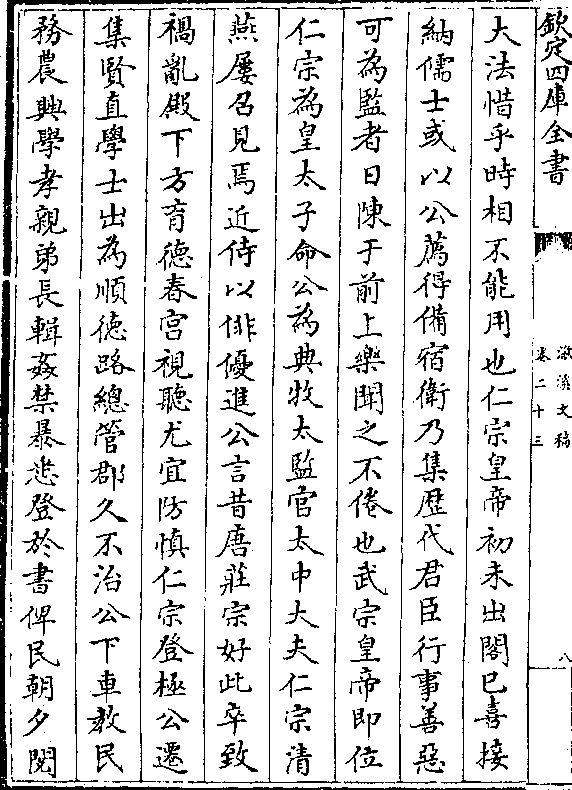 欽定四庫全書
滋溪文稿
卷二十三
八
大法惜乎時相不能用也仁宗皇帝初未出閣已喜接
納儒士或以公薦得備宿衛乃集歴代君臣行事善惡
可為監者日陳于前上樂聞之不倦也武宗皇帝即位
仁宗為皇太子命公為典牧太監官太中大夫仁宗清
燕屢召見焉近侍以俳優進公言昔唐莊宗好此卒致
禍亂殿下方育德春宫視聽尤宜防慎仁宗登極公遷
集賢直學士出為順徳路總管郡久不治公下車教民
務農興學孝親弟長輯姦禁暴悉登於書俾民朝夕閱